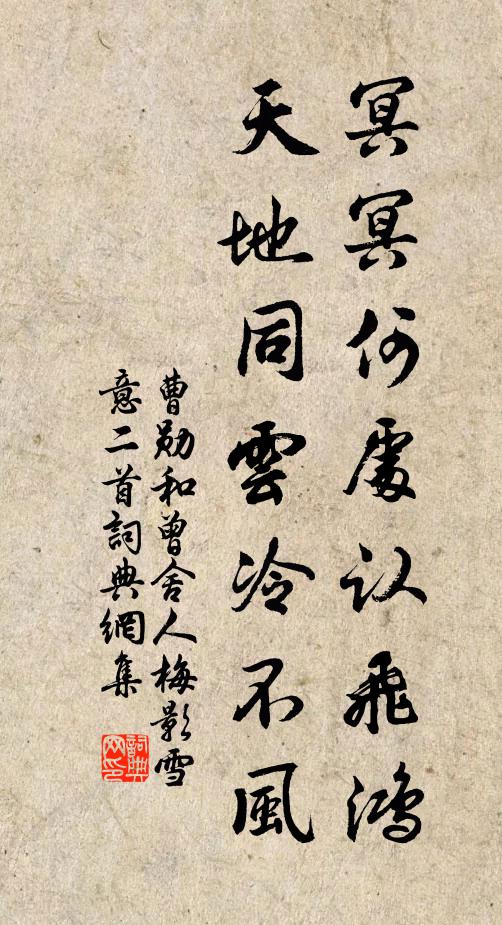 冥冥何處认飛鴻
天地同雲冷不風
曹勛和曾舍人梅影雪
意二首詞典網集
詞典
网印